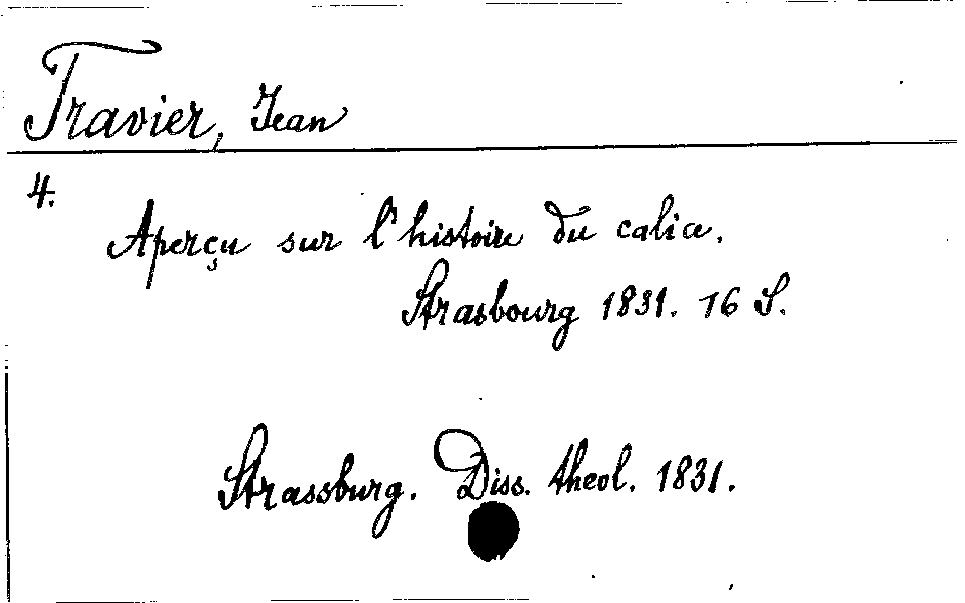 Travier, Jean
4.
Aperçu sur l'histoire du calice.
Strasbourg 1831. 16 S.
Strassburg. Diss. theol. 1831.